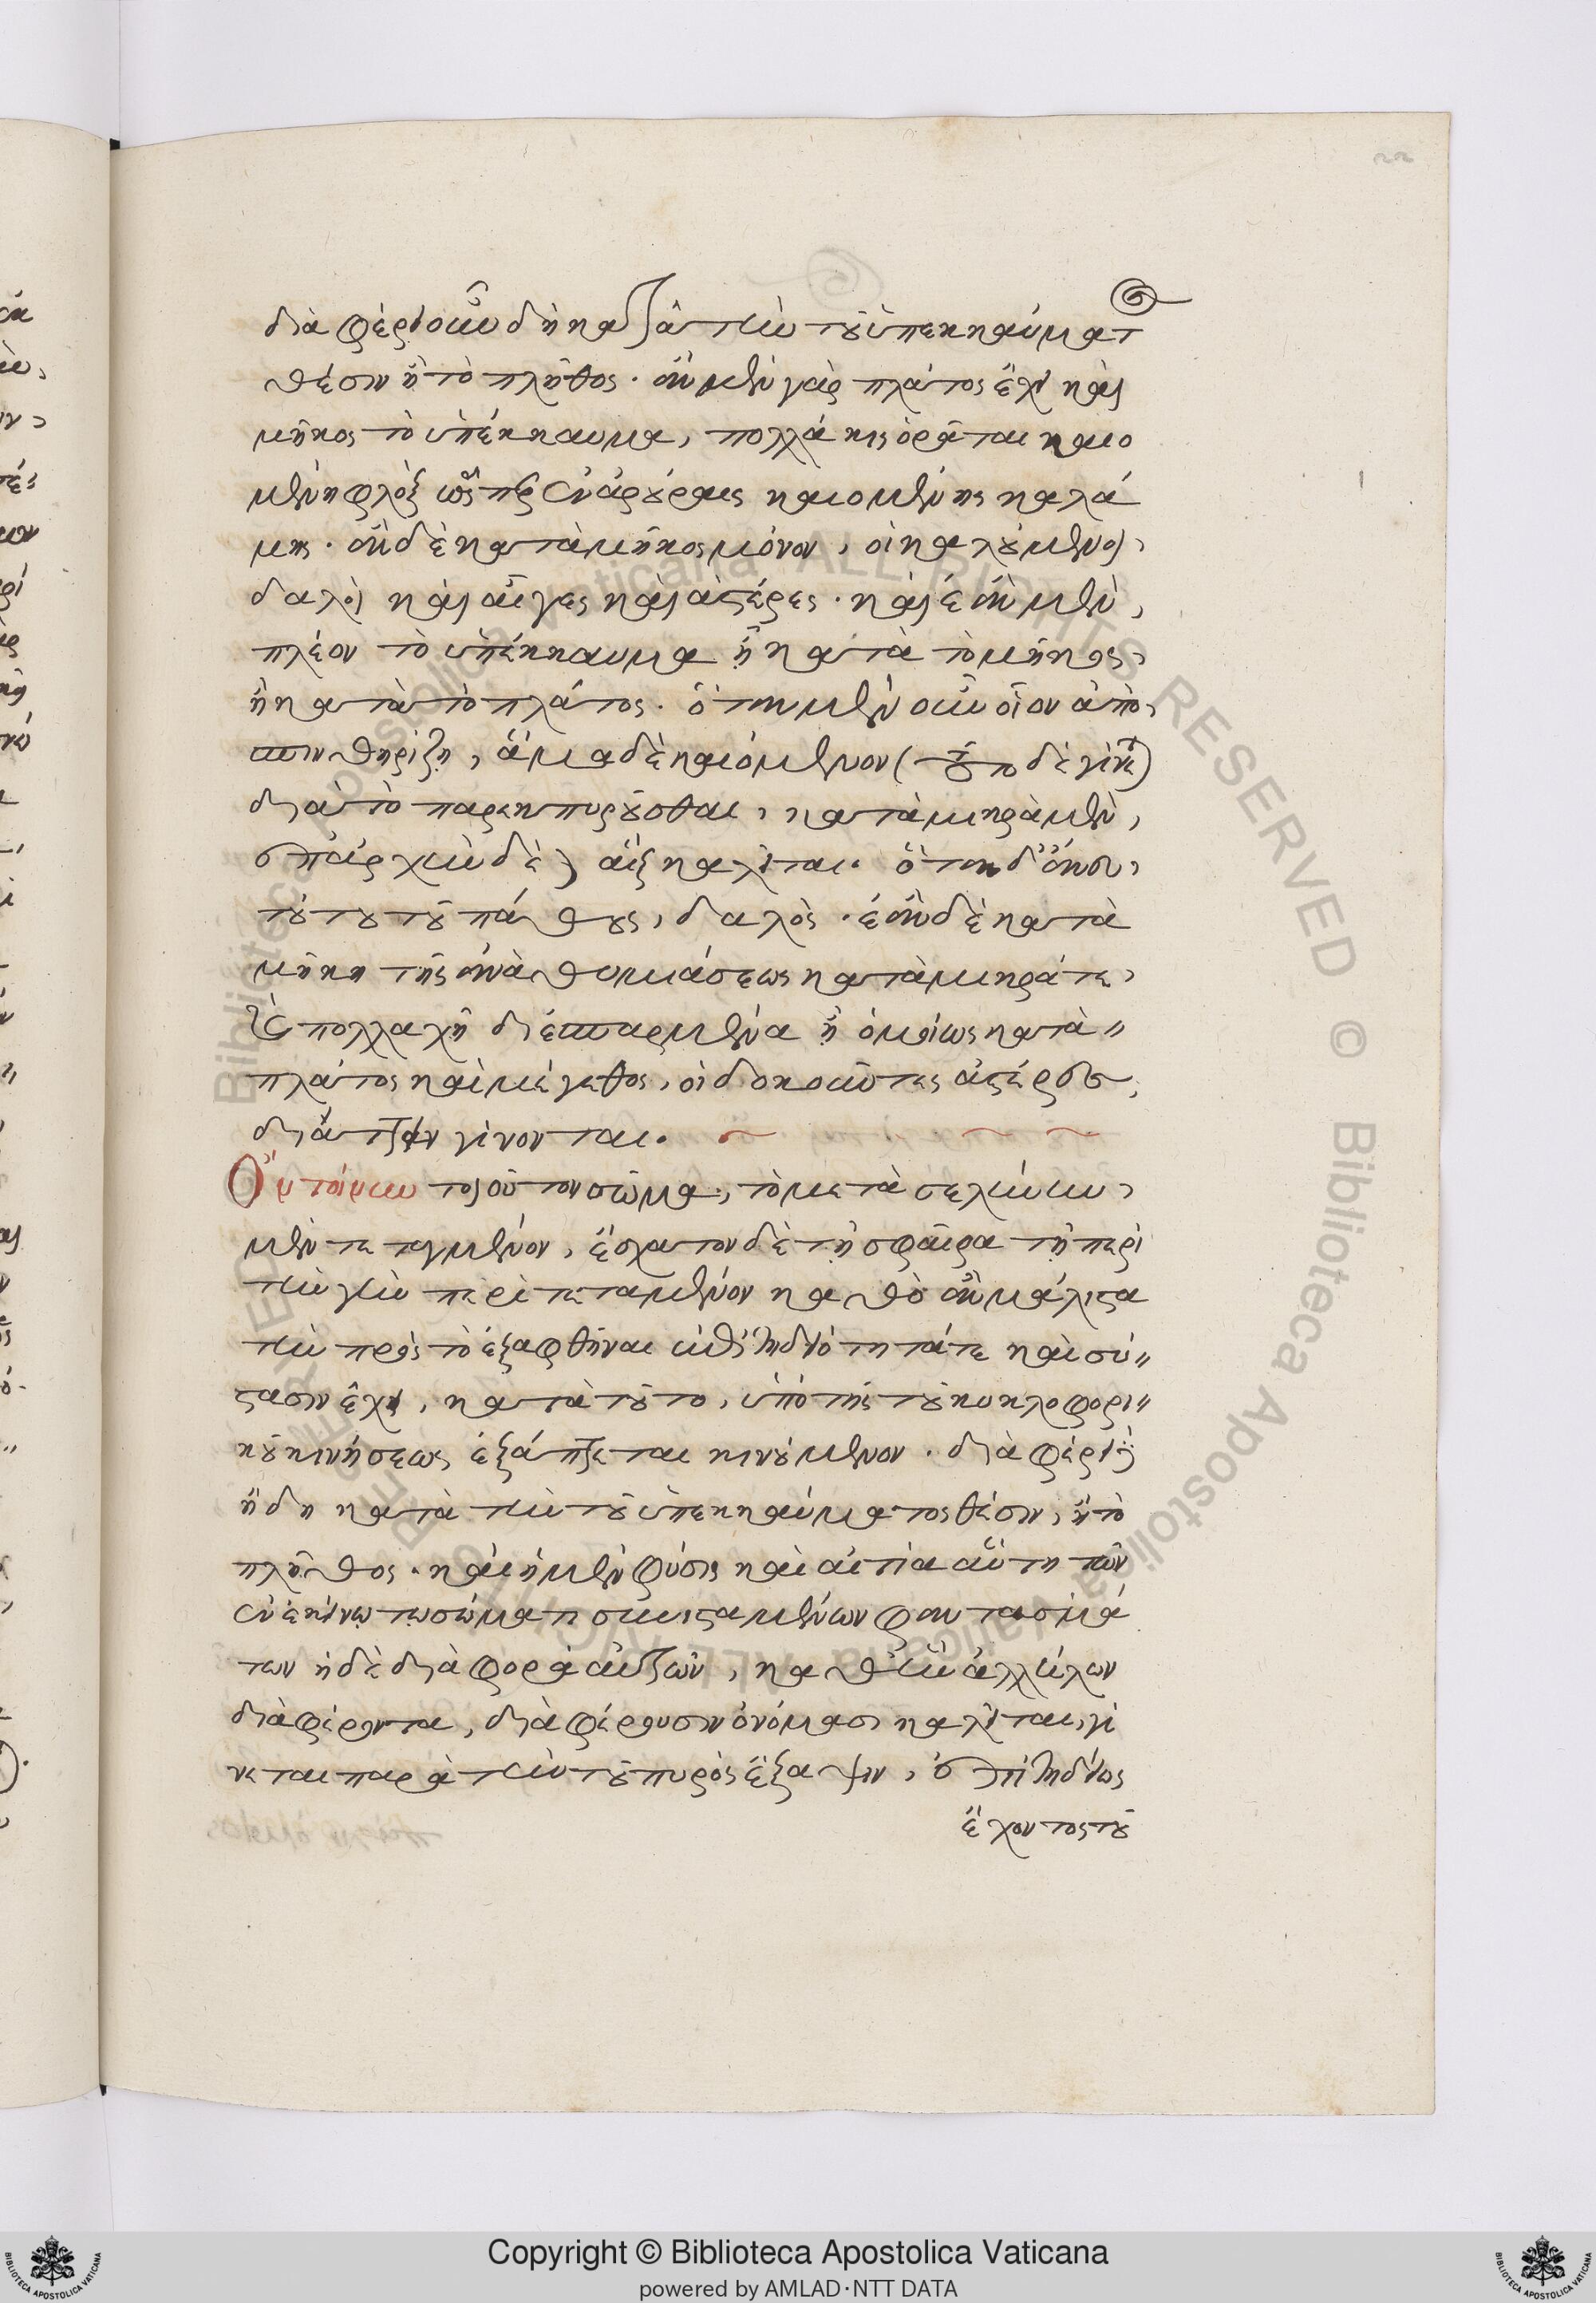 διαφέρει οὖν δὴ κατὰ τὴν τοῦ ὑπεκκαύματος
θέσιν ἢ τὸ πλῆθος. ἂν μὲν γὰρ πλάτος ἔχῃ καὶ
μῆκος τὸ ὑπέκκαυμα, πολλάκις ὁρᾶται καιο
μένη φλὸξ ὥσπερ ἐν ἀρούραις καιομένης καλά
μης. ἂν δὲ κατὰ μῆκος μόνον, οἱ καλούμενοι,
δαλοὶ καὶ αἶγες καὶ ἀστέρες. καὶ ἐὰν μὲν,
πλέον τὸ ὑπέκκαυμα ἢ κατὰ τὸ μῆκος,
ἢ κατὰ τὸ πλάτος. ὅταν μὲν οὖν οἷον ἀπο,
σπινθηρίζῃ, ἅμα δὲ καιόμενον (τοῦτο δὲ γίνεται)
διὰ τὸ παρεκπυροῦσθαι, κατὰ μικρὰ μὲν,
ἐπ' ἀρχὴν δὲ) αἲξ καλεῖται. ὅταν δ' ἄνευ,
τούτου τοῦ πάθους, δαλός. ἐὰν δὲ κατὰ
μήκη τῆς ἀναθυμιάσεως κατὰ μικρά τε,
καὶ πολλαχῇ διεσπαρμένα ἢ ὁμοίως κατὰ
πλάτος καὶ μέγεθος, οἱ δοκοῦντες ἀστέρες,
διάττειν γίνονται.
Ὅτι τοίνυν τοιοῦτον σῶμα, τὸ μετὰ σελήνην,
μὲν τεταγμένον, ἔσχατον δὲ τῇ σφαίρᾳ τῇ περὶ
τὴν γῆν περιτεταμένον καθὸ ἂν μάλιστα
τὴν πρὸς τὸ ἐξαφθῆναι ἐπιτηδειότητά τε καὶ σύ
στασιν ἔχει, κατὰ τοῦτο, ὑπὸ τῆς τοῦ κυκλοφορι
κοῦ κινήσεως ἐξάπτεται κινούμενον. διαφέρει
ἤδη κατὰ τὴν τοῦ ὑπεκκαύματος θέσιν, ἢ τὸ
πλῆθος. καὶ ἡ μὲν φύσις καὶ αἰτία αὕτη τῶν
ἐν ἐκείνῳ τῷ σώματι συνισταμένων φαντασμά
των ἡ δὲ διαφορὰ αὐτῶν, καθ' ἣν ἀλλήλων
διαφέροντα, διαφέρουσιν ὀνόμασι καλεῖται, γί
νεται παρὰ τὴν τοῦ πυρὸς ἔξαψιν, ἐπιτηδείως
ἔχοντος τοῦ